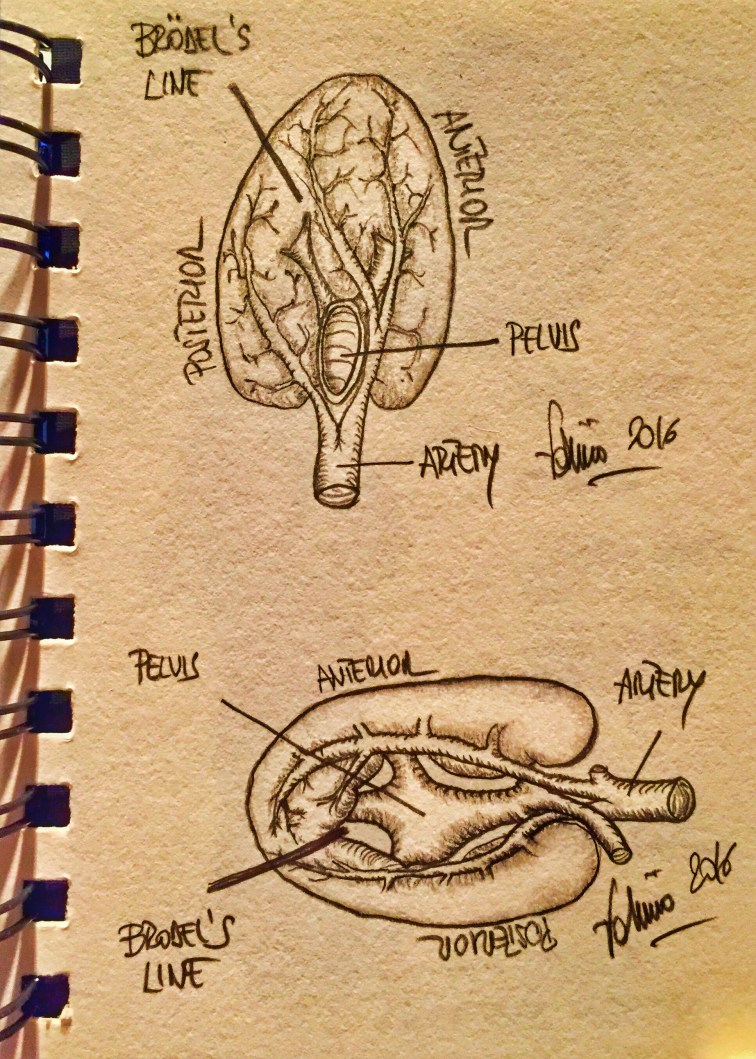 BRÖDEL'S
LINE
ANTERIOR
POSTERIOR
PELVIS
ARTERY
2016
PELVIS
ANTERIOR
ARTERY
2016
BRODEL'S
LINE
POSTERIOR